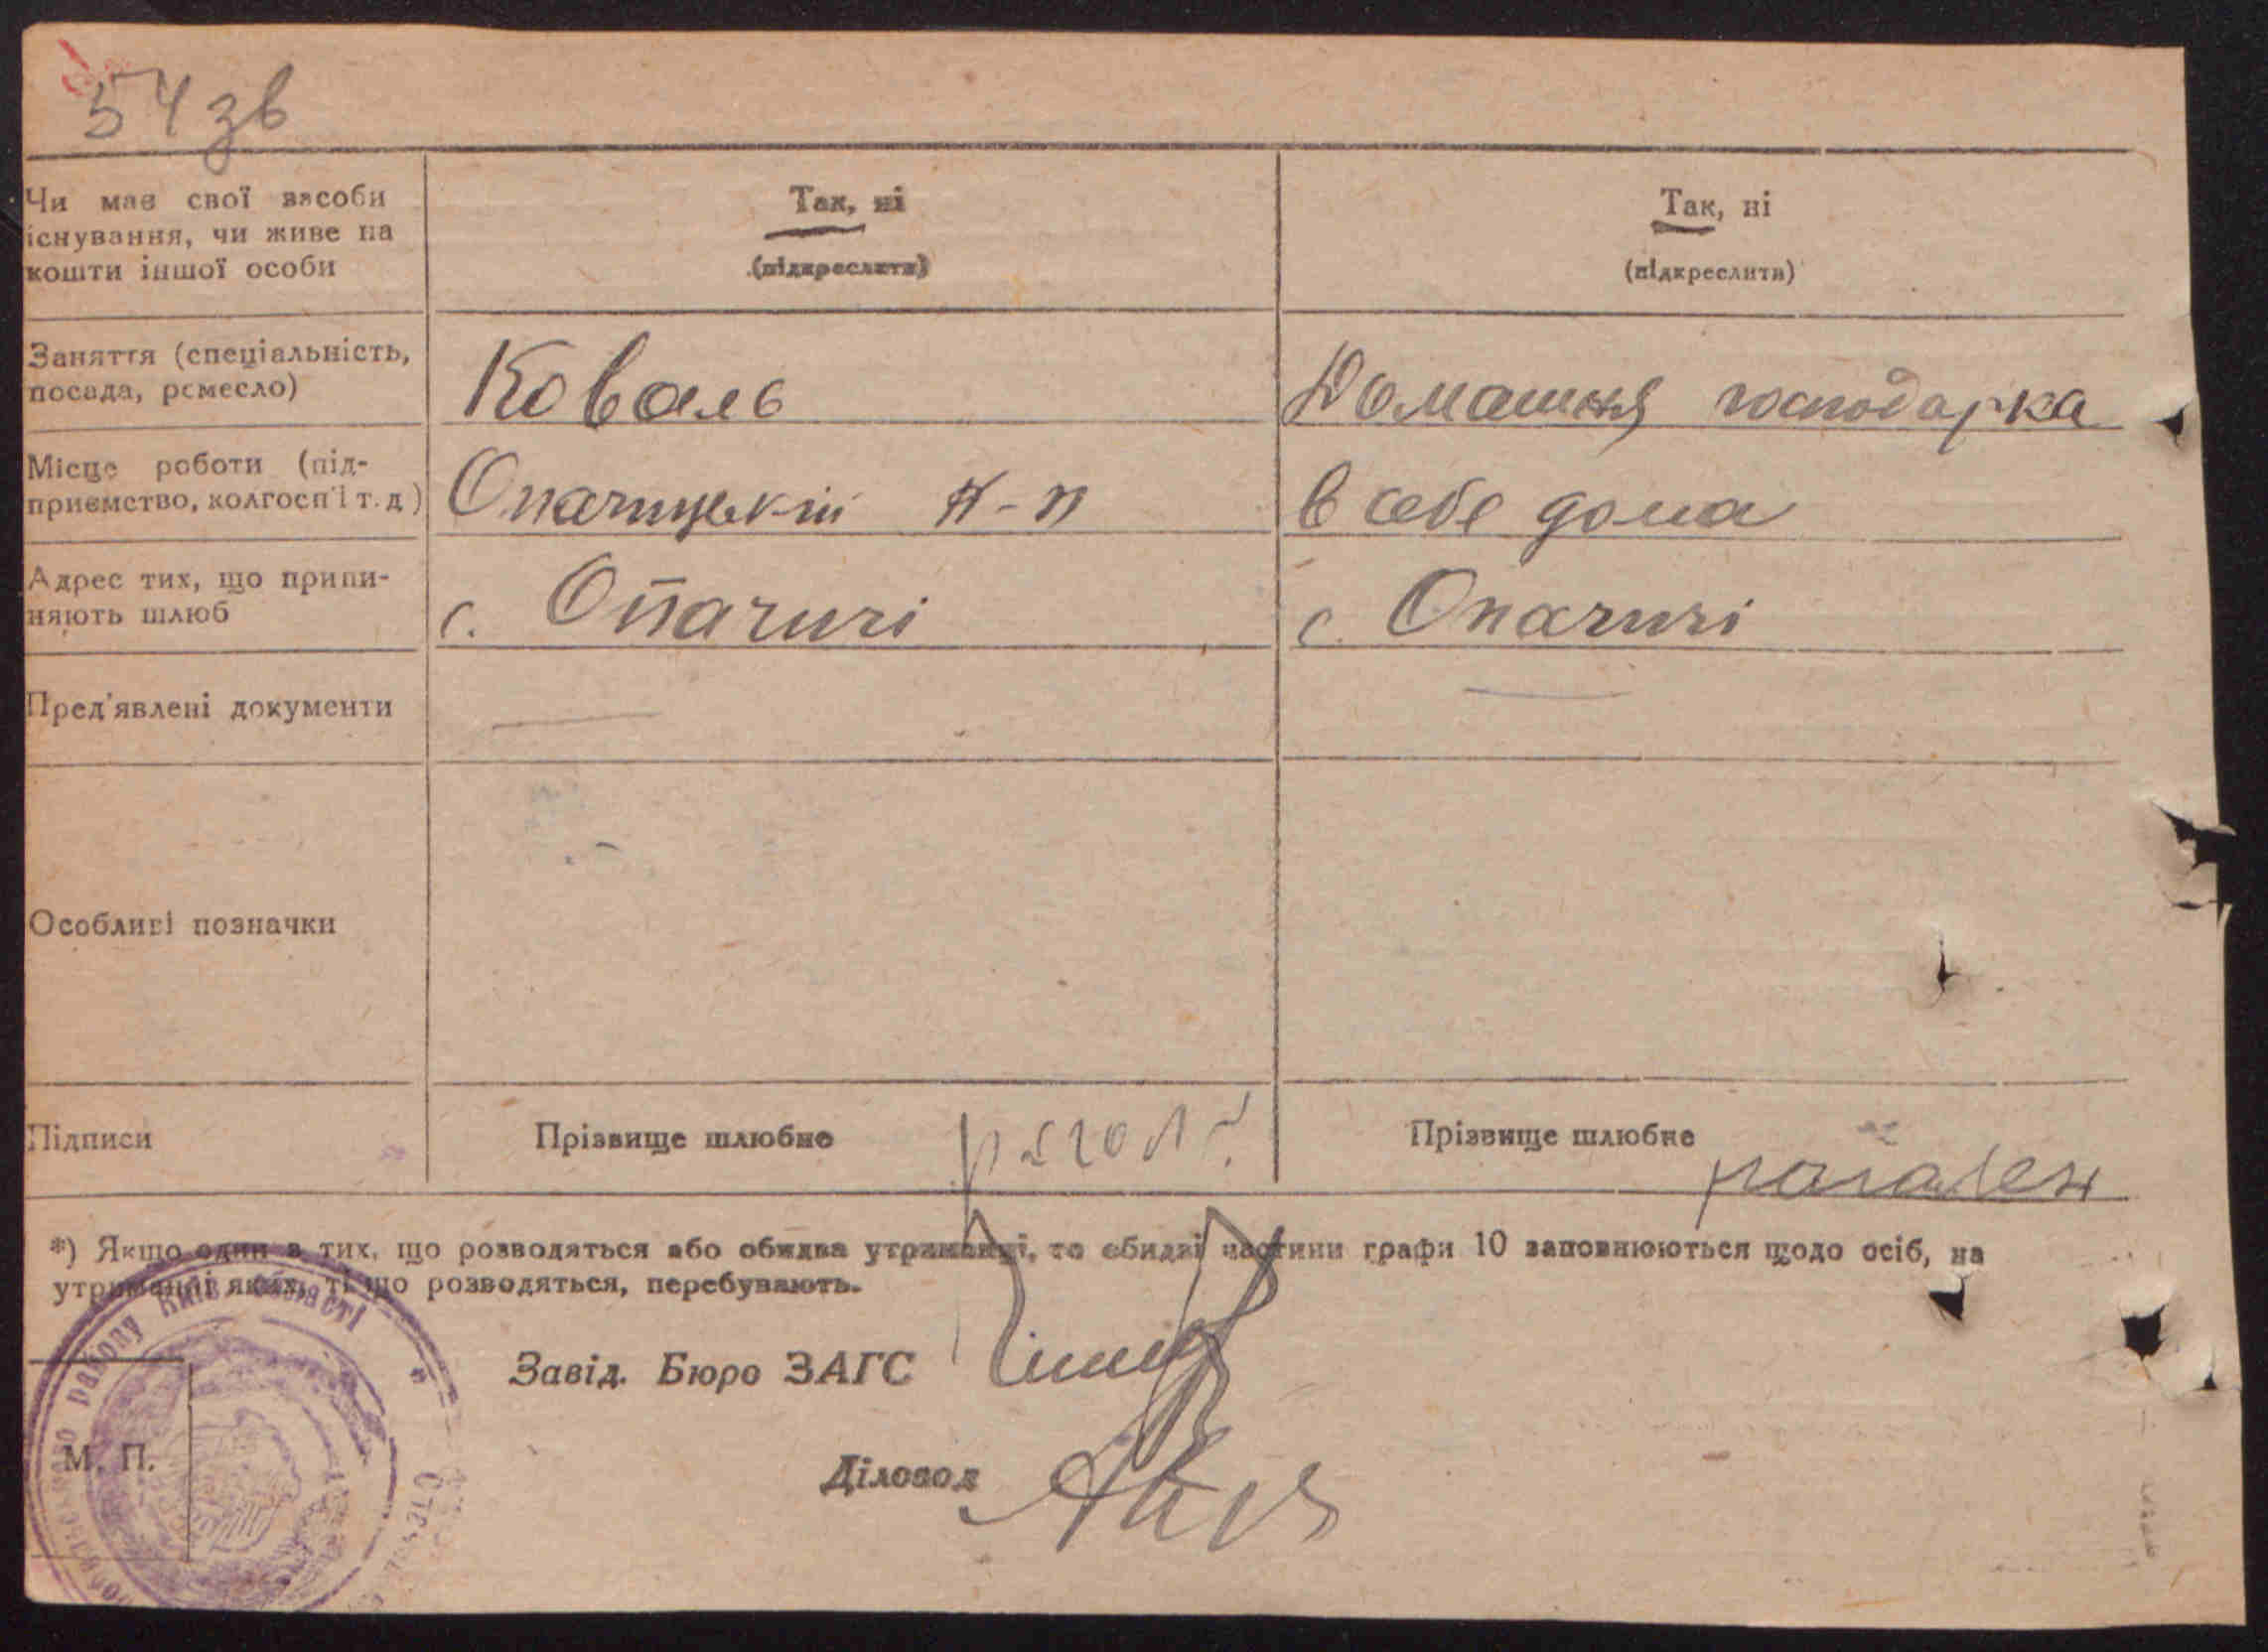 54 зв
Чи має свої засоби
існування, чи живе на
кошти іншої особи
Так, ні
(підкреслити)
Так, ні
(підкреслити)
Заняття (спеціальність,
посада, ремесло)
Коваль
Домашня господарка
Місце роботи (під-
приємство, колгосп і т. д)
Опачицькій к-п
в себе дома
Адрес тих, що припи-
няють шлюб
с. Опачичі
с. Опачичі
Пред'явлені документи
Особливі позначки
Підписи
Прізвище шлюбне
Прізвище шлюбне
*) Якщо один з тих, що розводяться або обидва утриманці, то обидві частини графи 10 заповнюються щодо осіб, на
утриманні яких, ті що розводяться, перебувають.
району Київ. області
Завід. Бюро ЗАГС
М. П.
Діловод